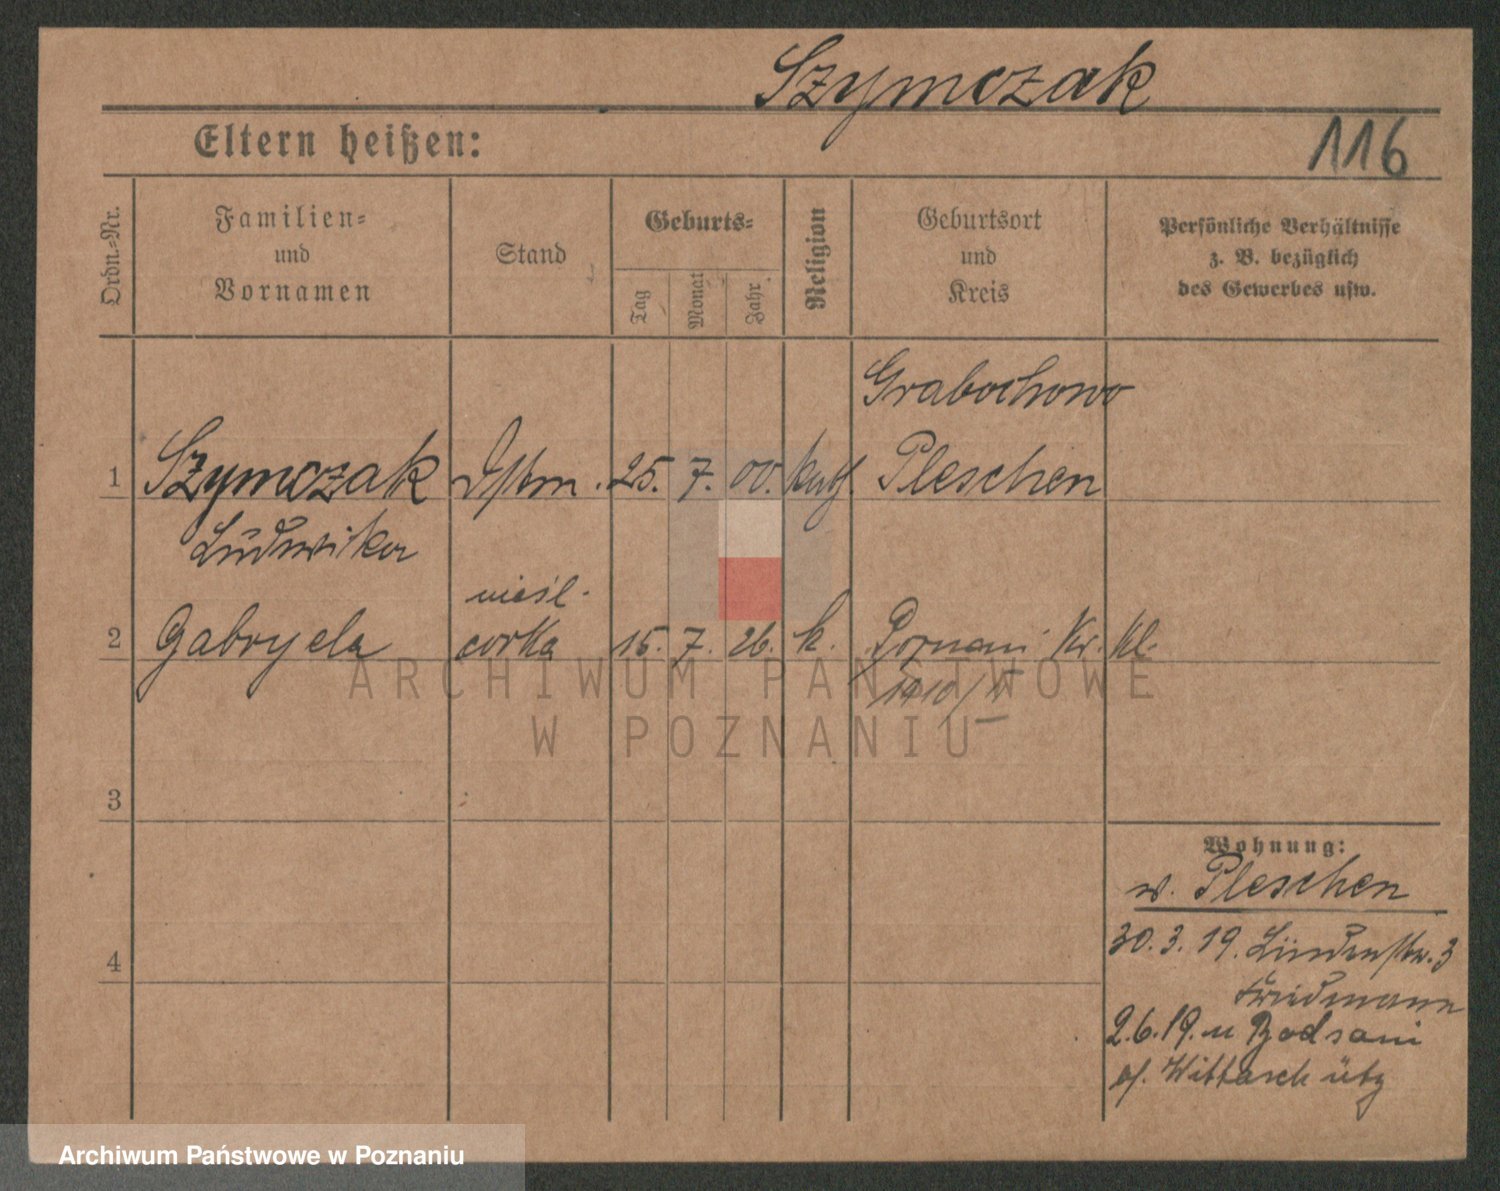 Szymczak
Eltern heißen:
116
Ordn.-Nr.
Familien-
und
Vornamen
Stand
Geburts-
Tag
Monat
Jahr
Religion
Geburtsort
und
Kreis
Persönliche Verhältnisse
z. B. bezüglich
des Gewerbes usw.
Grabochowo
1 Szymczak Dstm. 25. 7. 00. kath. Pleschen
Ludwika
nieśl.
2 Gabryela corka 15. 7. 26. k. Poznań Kr. Kl.
1910/
ARCHIWUM PAŃSTWOWE
W POZNANIU
3
Wohnung:
w. Pleschen
30. 3. 19. Lindenstr. 3
Friedmann
4
2.6.19. n
Wittasch
Archiwum Państwowe w Poznaniu